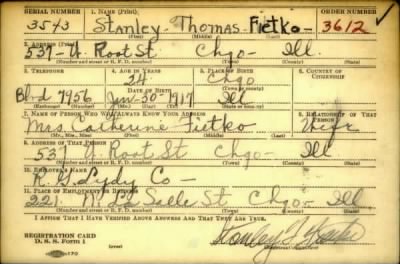 SERIAL NUMBER 1. NAME (Print) ORDER NUMBER
3543 Stanley - Thomas - Fietko - 3612
(First) (Middle) (Last)
2. ADDRESS (Print)
537 - W. Root St. Chgo - Ill.
(Number and street or R. F. D. number) (Town) (County) (State)
3. TELEPHONE 4. AGE IN YEARS 5. PLACE OF BIRTH 6. COUNTRY OF CITIZENSHIP
24 Chgo
Blvd 7956 Jun - 30 - 1917 Ill
(Exchange) (Number) (Mo.) (Day) (Yr.) (State or country)
7. NAME OF PERSON WHO WILL ALWAYS KNOW YOUR ADDRESS 8. RELATIONSHIP OF THAT PERSON
Mrs Catherine Fietko Wife
(Mr., Mrs., Miss) (First) (Middle) (Last)
9. ADDRESS OF THAT PERSON
537 W Root St Chgo - Ill
(Number and street or R. F. D. number) (Town) (County) (State)
10. EMPLOYER'S NAME
Co -
11. PLACE OF EMPLOYMENT OR BUSINESS
221 N. La Salle St Chgo - Ill
(Number and street or R. F. D. number) (Town) (County) (State)
I AFFIRM THAT I HAVE VERIFIED ABOVE ANSWERS AND THAT THEY ARE TRUE.
REGISTRATION CARD
D. S. S. Form 1 (over) Stanley T Fietko
(Registrant's signature)